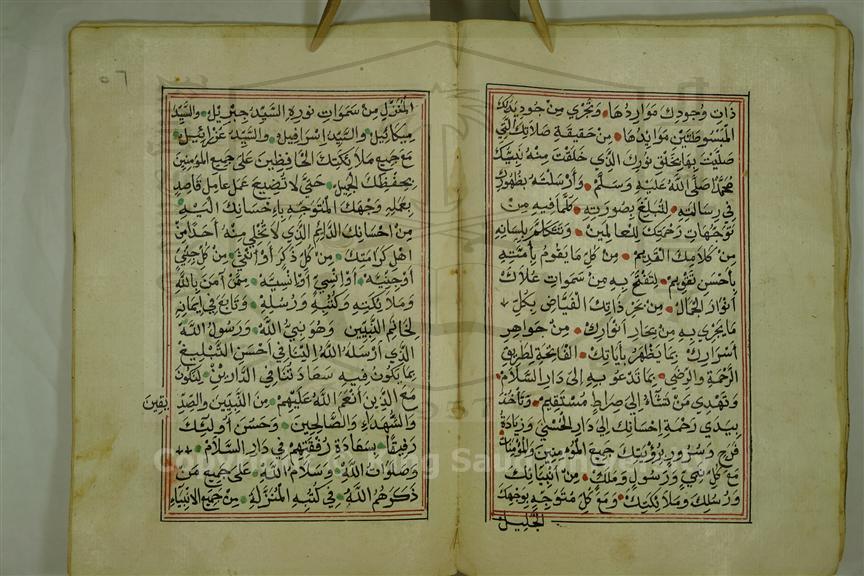 ذات وجودك مواردها وتجري من جود يدك
المبسوطتين موايدها من حقيقة صلاتك التي
صليت بها بخلق نورك الذي خلقت منه نبيك
محمدا صلى الله عليه وسلم وأرسلته بظهورك
في رسالته لتبلغ بصورته كلما فيه من
توجهات رحمتك للعالمين وتتكلم بلسانه
من كلامك القديم من كل ما يقوم بأمته
بأحسن تقويم لتفتح به من سموات علاك
أنوار الجمال من بحر ذاتك الفياض بكل
ما يجري به من بحار أنوارك من جواهر
أسرارك بما يظهر بآياتك الفاتحة لطريق
الرحمة والرضى بما تدعو به إلى دار السلام
وتهدي من تشاء إلى صراط مستقيم وتأخذ
بيدي رحمة إحسانك إلى دار الحسنى وزيادة
فرح وسرور برؤيتك جميع المؤمنين والمؤمنات
مع كل نبي ورسول وملك من أنبيائك
ورسلك وملائكتك ومع كل متوجه بوجهك
الجليل
٥٦
المنزل من سموات نوره السيد جبريل والسيد
ميكائيل والسيد إسرافيل والسيد عزرائيل
مع جميع ملائكتك الحافظين على جميع المؤمنين
بحفظك الجميل حتى لا تضيع عمل عامل قاصد
بعمله وجهك المتوجه بإحسانك اليه
من إحسانك الدائم الذي لا تخلي منه أحدا من
اهل كرامتك من كل ذكر أو أنثى من كل جني
أو جنية أو انسي أو انسية ممن آمن بالله
وملائكته وكتبه ورسله وتابع في إيمانه
لخاتم النبيين وهو نبي الله ورسول الله
الذي أرسله الله الينا في أحسن التبليغ
بما يكون فيه سعادتنا في الدارين لنكون
مع الذين أنعم الله عليهم من النبيين والصد يقين
والشهداء والصالحين وحسن أولئك
رفيقا بسعادة رفقتهم في دار السلام
وصلوات الله وسلام الله على جميع من
ذكرهم الله في كتبه المنزلة من جميع الانبياء